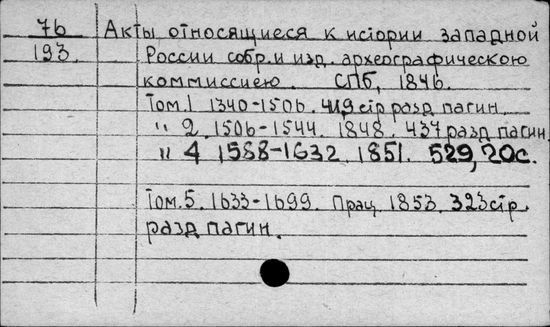 76 Акты относящиеся к истории западной
193. России собр. и изд. археографическою
коммиссиею. СПб, 1846.
Том.1 1340-1506. 419 стр разд пагин.
" 2. 1506-1544. 1848. 437 разд пагин.
" 4 1588-1632. 1851. 529, 20с.
Том.5. 1633-1699. Прац. 1853. 323 стр.
разд пагин.